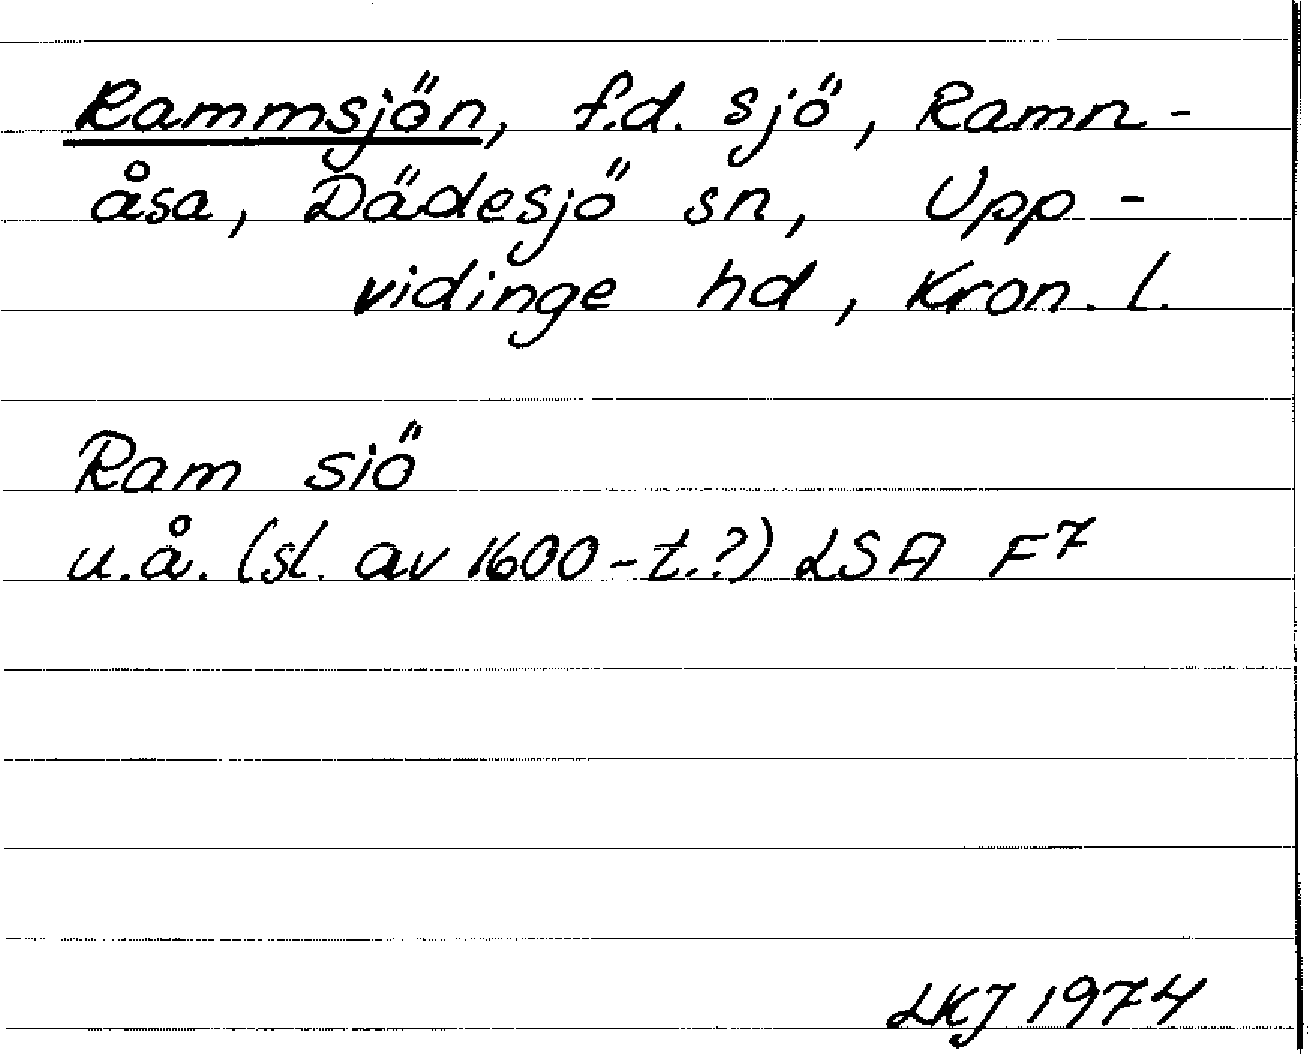 Rammsjön, f.d. sjö, Ramn-
åsa, Dädesjö sn, Upp-
vidinge hd, Kron. l.
Ram siö
u.å. (sl. av 1600-t.?) LSA F7
LKJ 1974